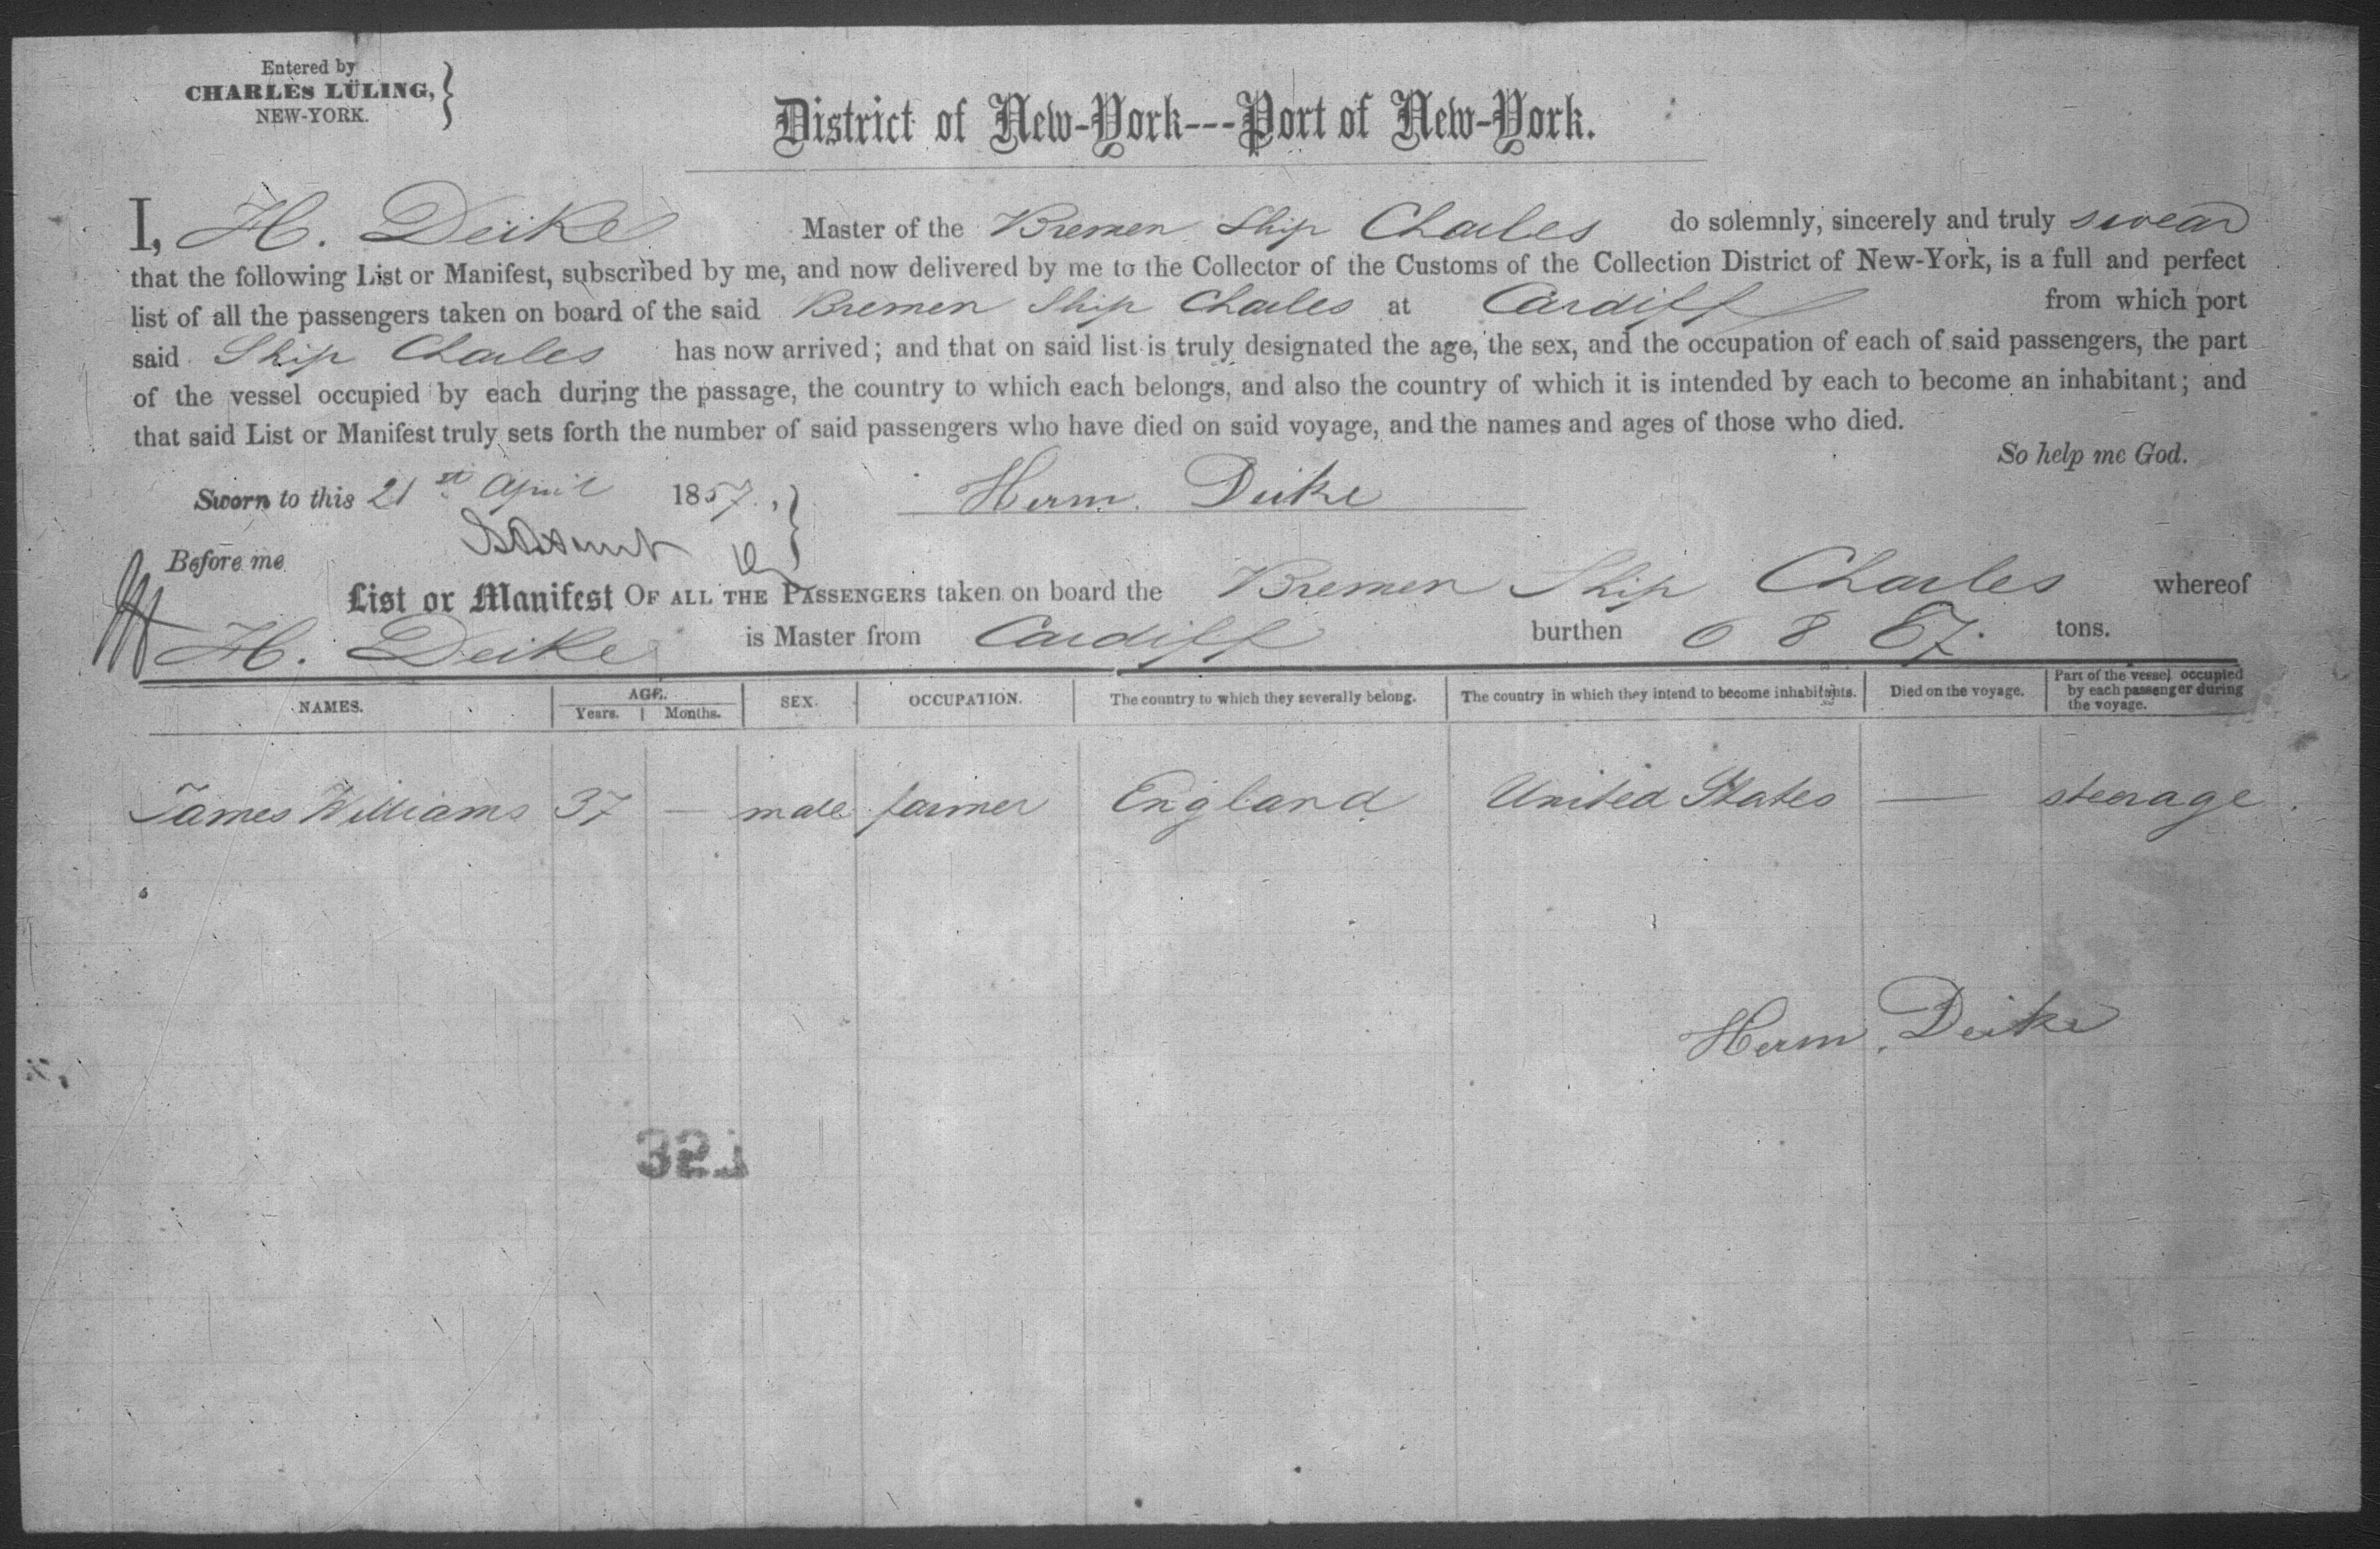 Entered by
CHARLES LÜLING,
NEW-YORK.
District of New-York---Port of New-York.
I, H. Deike Master of the Bremen Ship Charles do solemnly, sincerely and truly swear
that the following List or Manifest, subscribed by me, and now delivered by me to the Collector of the Customs of the Collection District of New-York, is a full and perfect
list of all the passengers taken on board of the said Bremen Ship Charles at Cardiff from which port
said Ship Charles has now arrived; and that on said list is truly designated the age, the sex, and the occupation of each of said passengers, the part
of the vessel occupied by each during the passage, the country to which each belongs, and also the country of which it is intended by each to become an inhabitant; and
that said List or Manifest truly sets forth the number of said passengers who have died on said voyage, and the names and ages of those who died.
So help me God.
Sworn to this 21st April 1857. Herm. Deike
Before me
List or Manifest OF ALL THE PASSENGERS taken on board the Bremen Ship Charles whereof
H. Deike is Master from Cardiff burthen tons.
NAMES. AGE. Years. Months. SEX. OCCUPATION. The country to which they severally belong. The country in which they intend to become inhabitants. Died on the voyage. Part of the vessel occupied by each passenger during the voyage.
James Williams 37 — male farmer England United States — steerage.
Herm. Deike
321